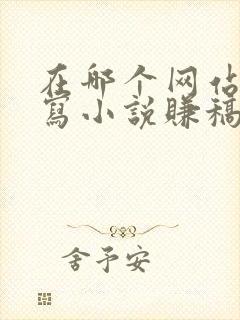 在哪个网佔
寫小説賺稿
舍予安